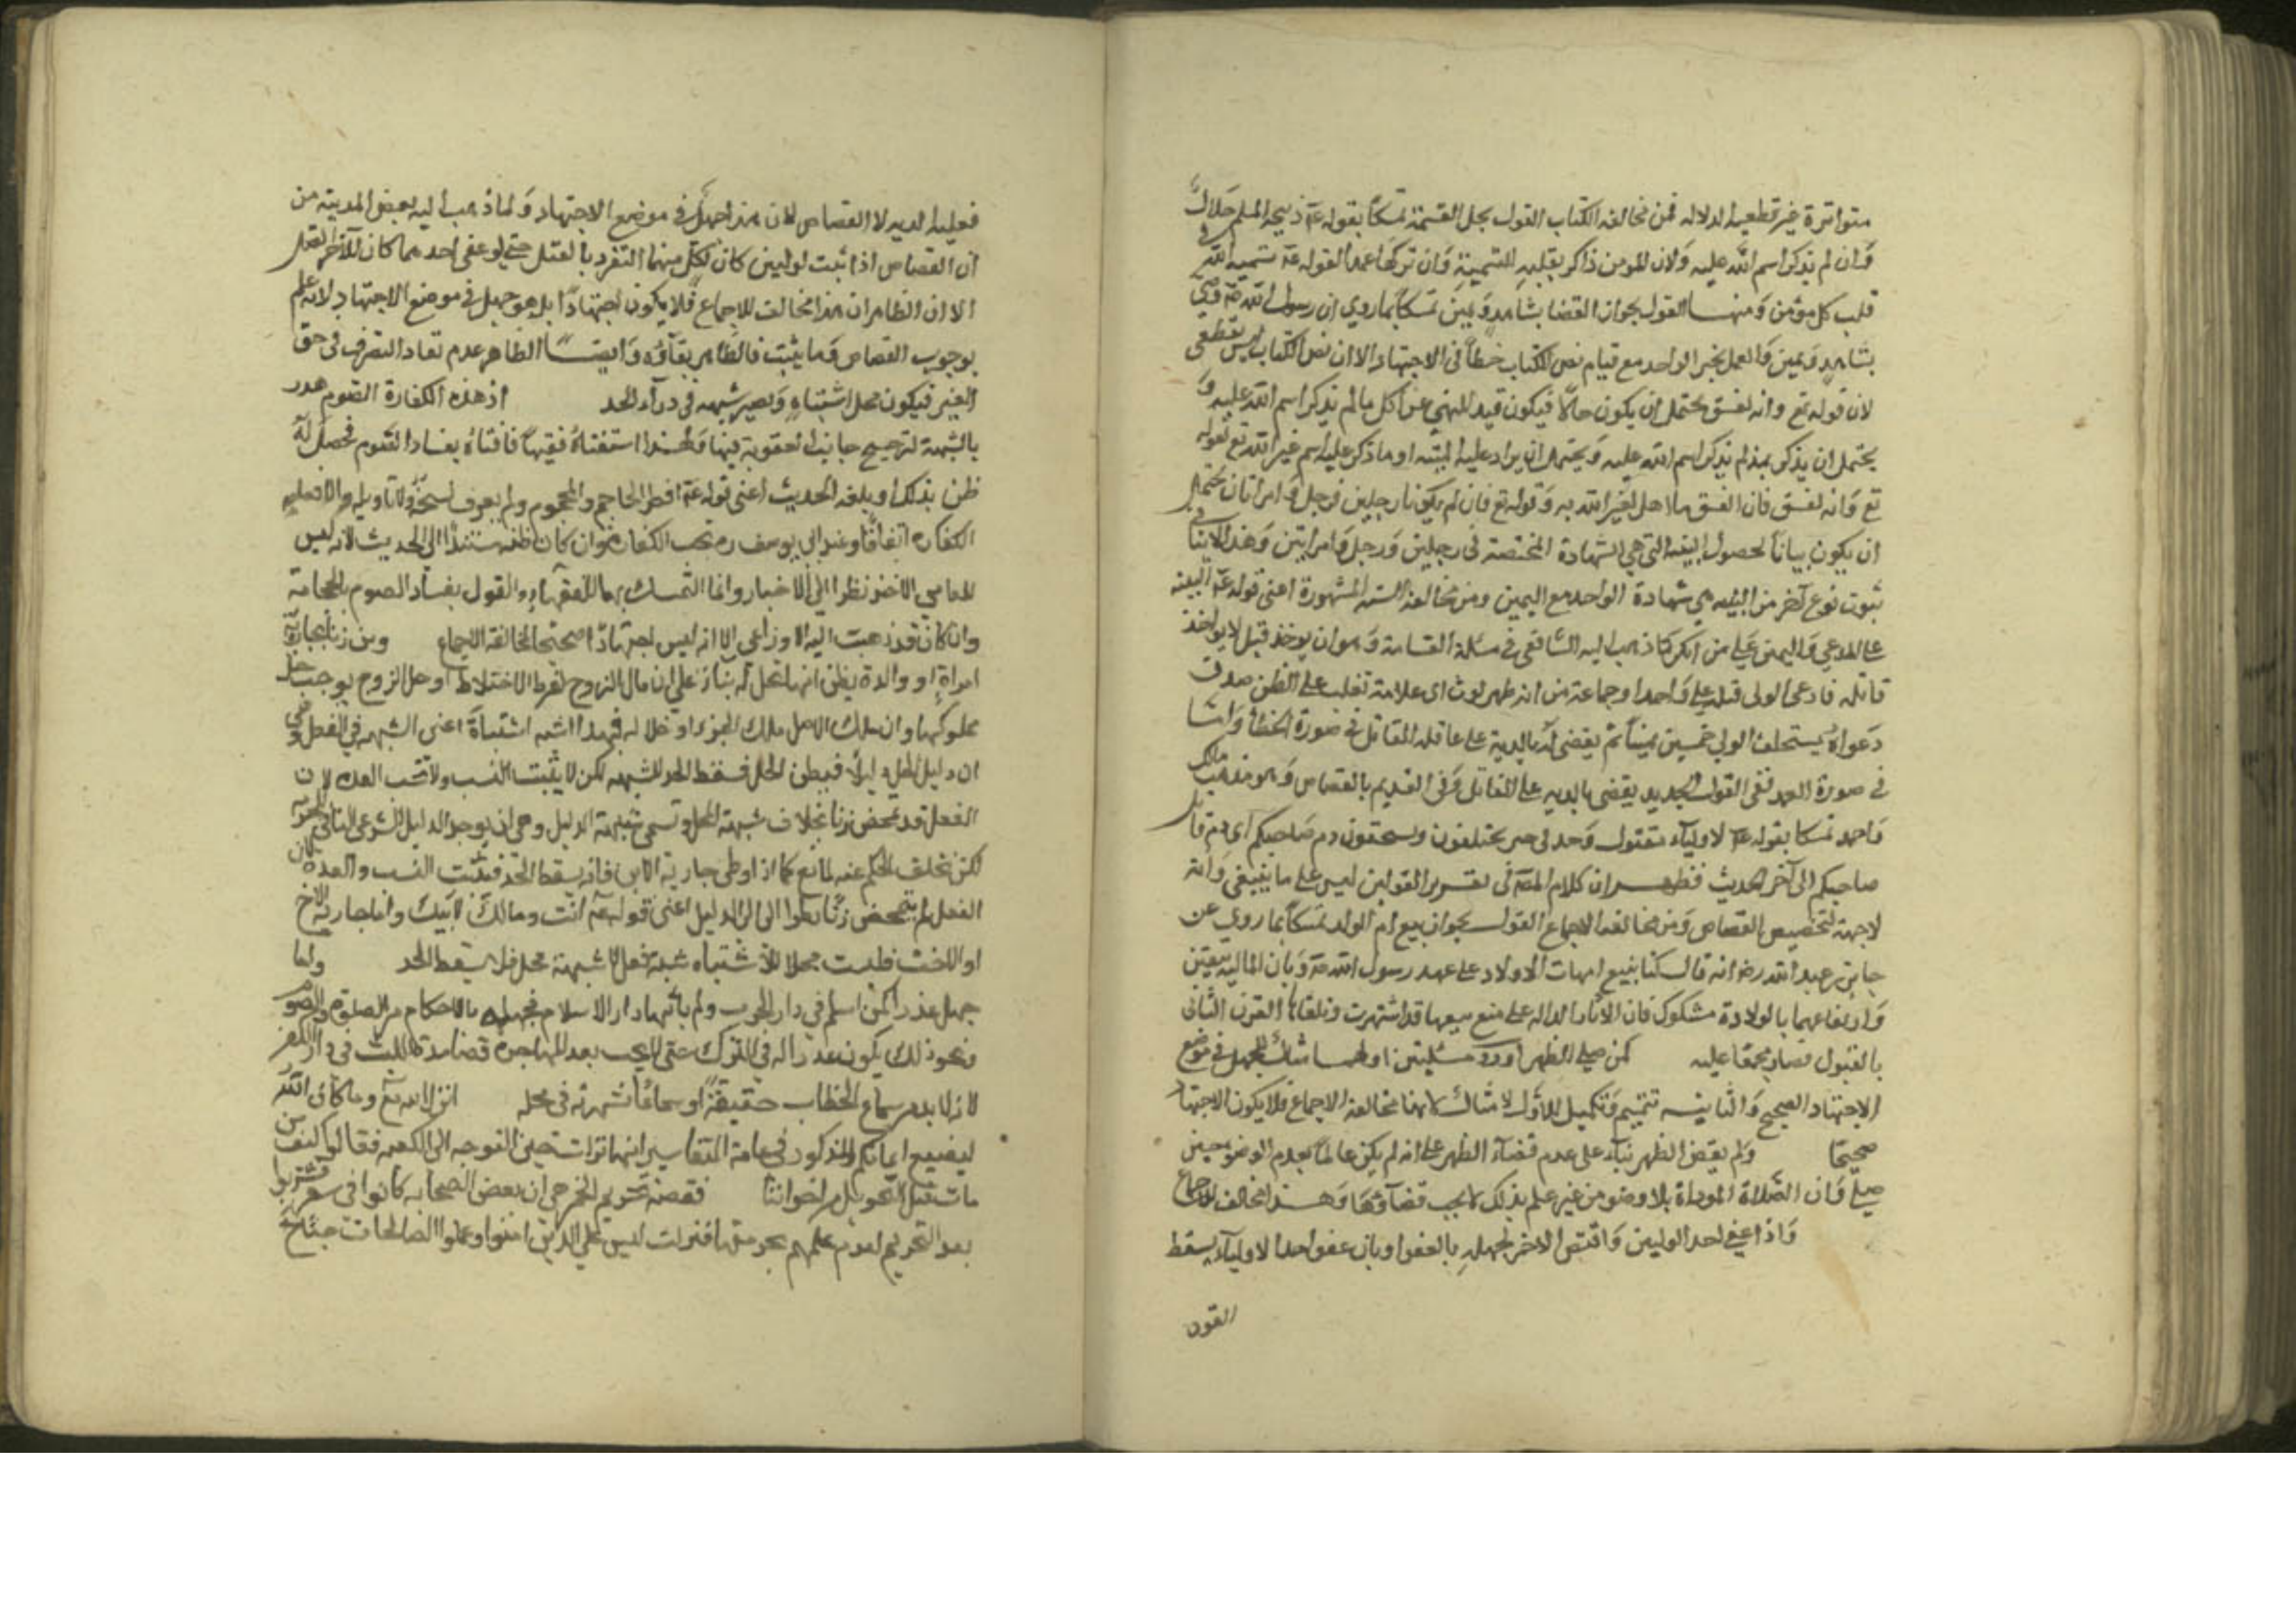 متواترة غير قطعية الدلالة فمن مخالفة الكتاب القول بحل القسمة تمسكا بقوله عم ذبيحة المسلم حلال
وان لم يذكر اسم الله عليه ولان المومن ذاكر بقلبه للتسمية وان تركها عمدا لقوله عم تسمية الله في
قلب كل مؤمن ومنها القول بجواز القضا بشاهد ويمين تمسكا بما روي ان رسول الله صم قضي
بشاهد ويمين والعمل بخبر الواحد مع قيام نص الكتاب خطأ في الاجتهاد الا ان نص الكتاب ليس بقطعي
لان قوله تع وانه لفسق يحتمل ان يكون حالا فيكون قيد للنهي عن اكل ما لم يذكر اسم الله عليه و
يحتمل ان يذكر بمذ لم يذكر اسم الله عليه ويحتمل ان يراد عليه الميتة او ما ذكر عليه اسم غير الله تع لقوله
تع وانه لفسق فان الفسق ما اهل لغير الله به وقوله تع فان لم يكونا رجلين فرجل وامراتان يحتمل
ان يكون بيانا لحصول البينة التي هي الشهادة المختصة في رجلين ورجل وامراتين وهذا لا ينافي
ثبوت نوع آخر من البينة هي شهادة الواحد مع اليمين ومن مخالفة السنة المشهورة اعني قوله عم البينة
على المدعي واليمين على من انكر كما ذهب اليه الشافعي في مسئلة القسامة وهو ان يوخذ قتيل لا يواخذ
قاتله فادعى الولى قتله على واحد او جماعة من انه ظهر لوث اى علامة تغلب على الظن صدق
دعواه يستحلف الولي خمسين يمينا ثم يقضى له بالدية على عاقلة القاتل في صورة الخطأ واما
في صورة العمد ففى القول الجديد يقضى بالدية على القاتل وفى القديم بالقصاص وهو مذهب مالك
واحمد تمسكا بقوله عم لاولياء مقتول وحد في خيبر تحلفون وتستحقون دم صاحبكم اى دم قاتل
صاحبكم الى آخر الحديث فظهر ان كلام المصم في تقرير القولين ليس على ما ينبغي وانه
لا جهة لتخصيص القصاص ومن مخالفة الاجماع القول بجواز بيع ام الولد تمسكا بما روي عن
جابر بن عبد الله رض انه قال كنا نبيع امهات الاولاد على عهد رسول الله صم وبان المالية بيقين
وارتفاعها بالولادة مشكوك فان الآثار الدالة على منع بيعها قد اشتهرت وتلقاها القرن الثانى
بالقبول فصار مجمعا عليه كمن صلى الظهر اورد مسئلتين اولهما مثال للجهل في موضع
الاجتهاد الصحيح والثانية تتميم وتكميل للاول لا مثال لانها مخالفة الاجماع فلا يكون الاجتهاد
صحيحا ولم يقض الظهر بناء على عدم قضاء الظهر على انه لم يكن عالما بعدم الوضوء حين
صلى فان الصلاة المؤداة بلا وضوء من غير علم بذلك لا يجب قضاؤها وهذا مخالف للاجماع
واذا عفي احد الوليين واقتص الاخر لجهله بالعفو او بان عفو احد الاولياء يسقط
القود
فعليه الدية لا القصاص لان هذا جهل في موضع الاجتهاد ولما ذهب اليه بعض المدينة من
ان القصاص اذا ثبت لوليين كان لكل منهما التفرد بالقتل حتى لو عفى احدهما كان للآخر القتل
الا ان الظاهر ان هذا مخالف للاجماع فلا يكون اجتهادا بل هو جهل في موضع الاجتهاد لانه علم
بوجوب القصاص وما يثبت فالظاهر بقاؤه وايضا الظاهر عدم نفاد التصرف في حق
الغير فيكون محل اشتباه ويصير شبهة في درآء الحد اذ هذه الكفارة الصوم هدر
بالشبهة لترجيح جانب العقوبة فيها فلهذا استفتاه فقيها فافتاه بفساد الصوم فحصل له
ظن بذلك او بلغه الحديث اعنى قوله عم افطر الحاجم والمحجوم ولم يعرف نسخه ولا تاويله والا فعليه
الكفاره اتفاقا وعند ابي يوسف رم تجب الكفارة وان كان ظنه مستندا الى الحديث لانه ليس
للعامي الاخذ نظرا الى الاخبار وانما التمسك بها للفقهاء والقول بفساد الصوم بالحجامة
وان كان قد ذهبت اليه الاوزاعى الا انه ليس اجتهادا صحيحا لمخالفة الاجماع ومن زنا بجارية
امراته او والده يظن انها تحل له بناء على ان مال الزوج لفرط الاختلاط او حل الزوج يوجب حل
مملوكها وان ملك الاصل ملك الجزء او حلاله فهذا اشبه اشتباه اعنى الشبهة في الفعل وهي
ان دليل الحل دليلا فيظن الحل فسقط الحد للشبهة لكن لا يثبت النسب ولا تجب العده لان
الفعل قد تمحض زنا بخلاف شبهة المحل وتسمى شبهة الدليل وهى ان يوجد الدليل الشرعى النافي للحرمة
لكن تخلف الحكم عنه لمانع كما اذا وطى جارية الابن فانه يسقط الحد فيثبت النسب والعده لان
الفعل لم يتمحض زنا نظرا الى الدليل اعنى قوله عم انت ومالك لابيك واما جارية الاخ
او الاخت فليست محلا للاشتباه شبهة فعل لا شبهة محل فلا يسقط الحد واما
جهل عذر كمن اسلم في دار الحرب ولم يأتها دار الاسلام فجهله بالاحكام من الصلوة والصوم
ونحو ذلك يكون عذرا له في الترك حتى لا يجب بعد المهاجره قضا مدة اللبث في دار الكفر
لانه لا بد من سماع الخطاب حقيقة او سماعا شهرته في محله انزل الله تع وما كان الله
ليضيع ايمانكم والمذكور في عامة التفاسير انها نزلت حين التوجه الى الكعبه فقالوا كيف من
مات قبل التحويل من اخواننا فقصة تحريم الخمر هى ان بعض الصحابه كانوا في سفر فشربوا
بعد التحريم لعدم علمهم بحرمتها فنزلت ليس على الذين امنوا وعملوا الصالحات جناح